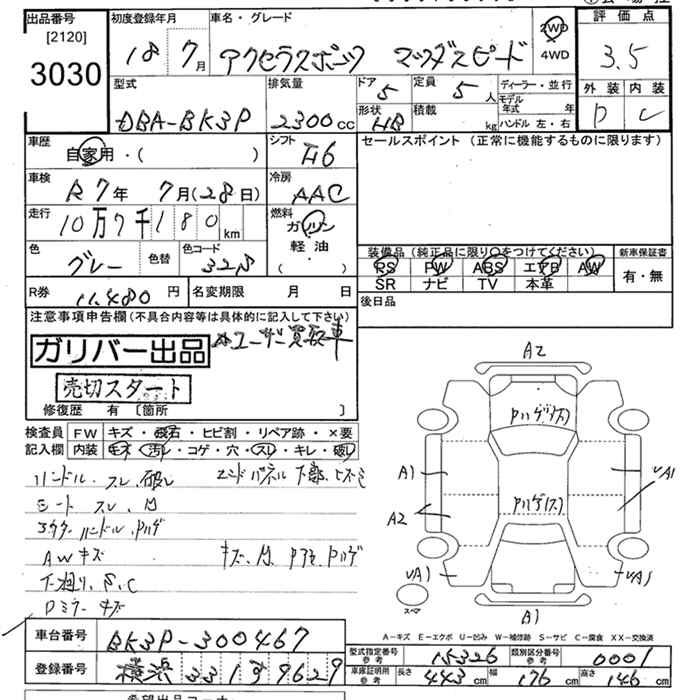 出品番号 初度登録年月 車名・グレード 評価点
[2120] 18年 7月 アクセラスポーツ マツダスピード 2WD 3.5
3030 4WD
型式 排気量 ドア 定員 ディーラー・並行 外装 内装
DBA-BK3P 2300cc 5 5人 モデル年式 年 D C
形状 HB 積載 kg ハンドル 左・右
車歴 自家用・( ) シフト F6 セールスポイント(正常に機能するものに限ります)
車検 R7年 7月(28日) 冷房 AAC
走行 10万7千180km 燃料 ガソリン
軽油
( )
色 グレー 色替 色コード 32S 装備品(純正品に限り○をつけてください) 新車保証書
RS PW ABS エアB AW 有・無
SR ナビ TV 本革
R券 11,480円 名変期限 月 日 後日品
注意事項申告欄(不具合内容等は具体的に記入して下さい)
ガリバー出品 ※ユーザー買取車
売切スタート
修復歴 有 [箇所 ]
検査員 FW キズ・飛石・ヒビ割・リペア跡・×要
記入欄 内装 キズ・汚れ・コゲ・穴・スレ・キレ・破レ
ハンドル、スレ、破レ エンドパネル下部、ヒズミ
シート スレ、
アウターハンドル、Pハゲ
AWキズ キズ、 Pハゲ
下廻り、S、C
Dミラーキズ
A2
Pハゲ(大)
A1 UA1
Pハゲ(大)
A2
UA1 UA1
スペア
A1
A-キズ E-エクボ U-凹み W-補修跡 S-サビ C-腐食 XX-交換済
車台番号 BK3P-300467 型式指定番号 参考 15326 類別区分番号 参考 0001
登録番号 横浜 331 す 9629 車庫証明用 参考 長さ 443cm 幅 176cm 高さ 146cm